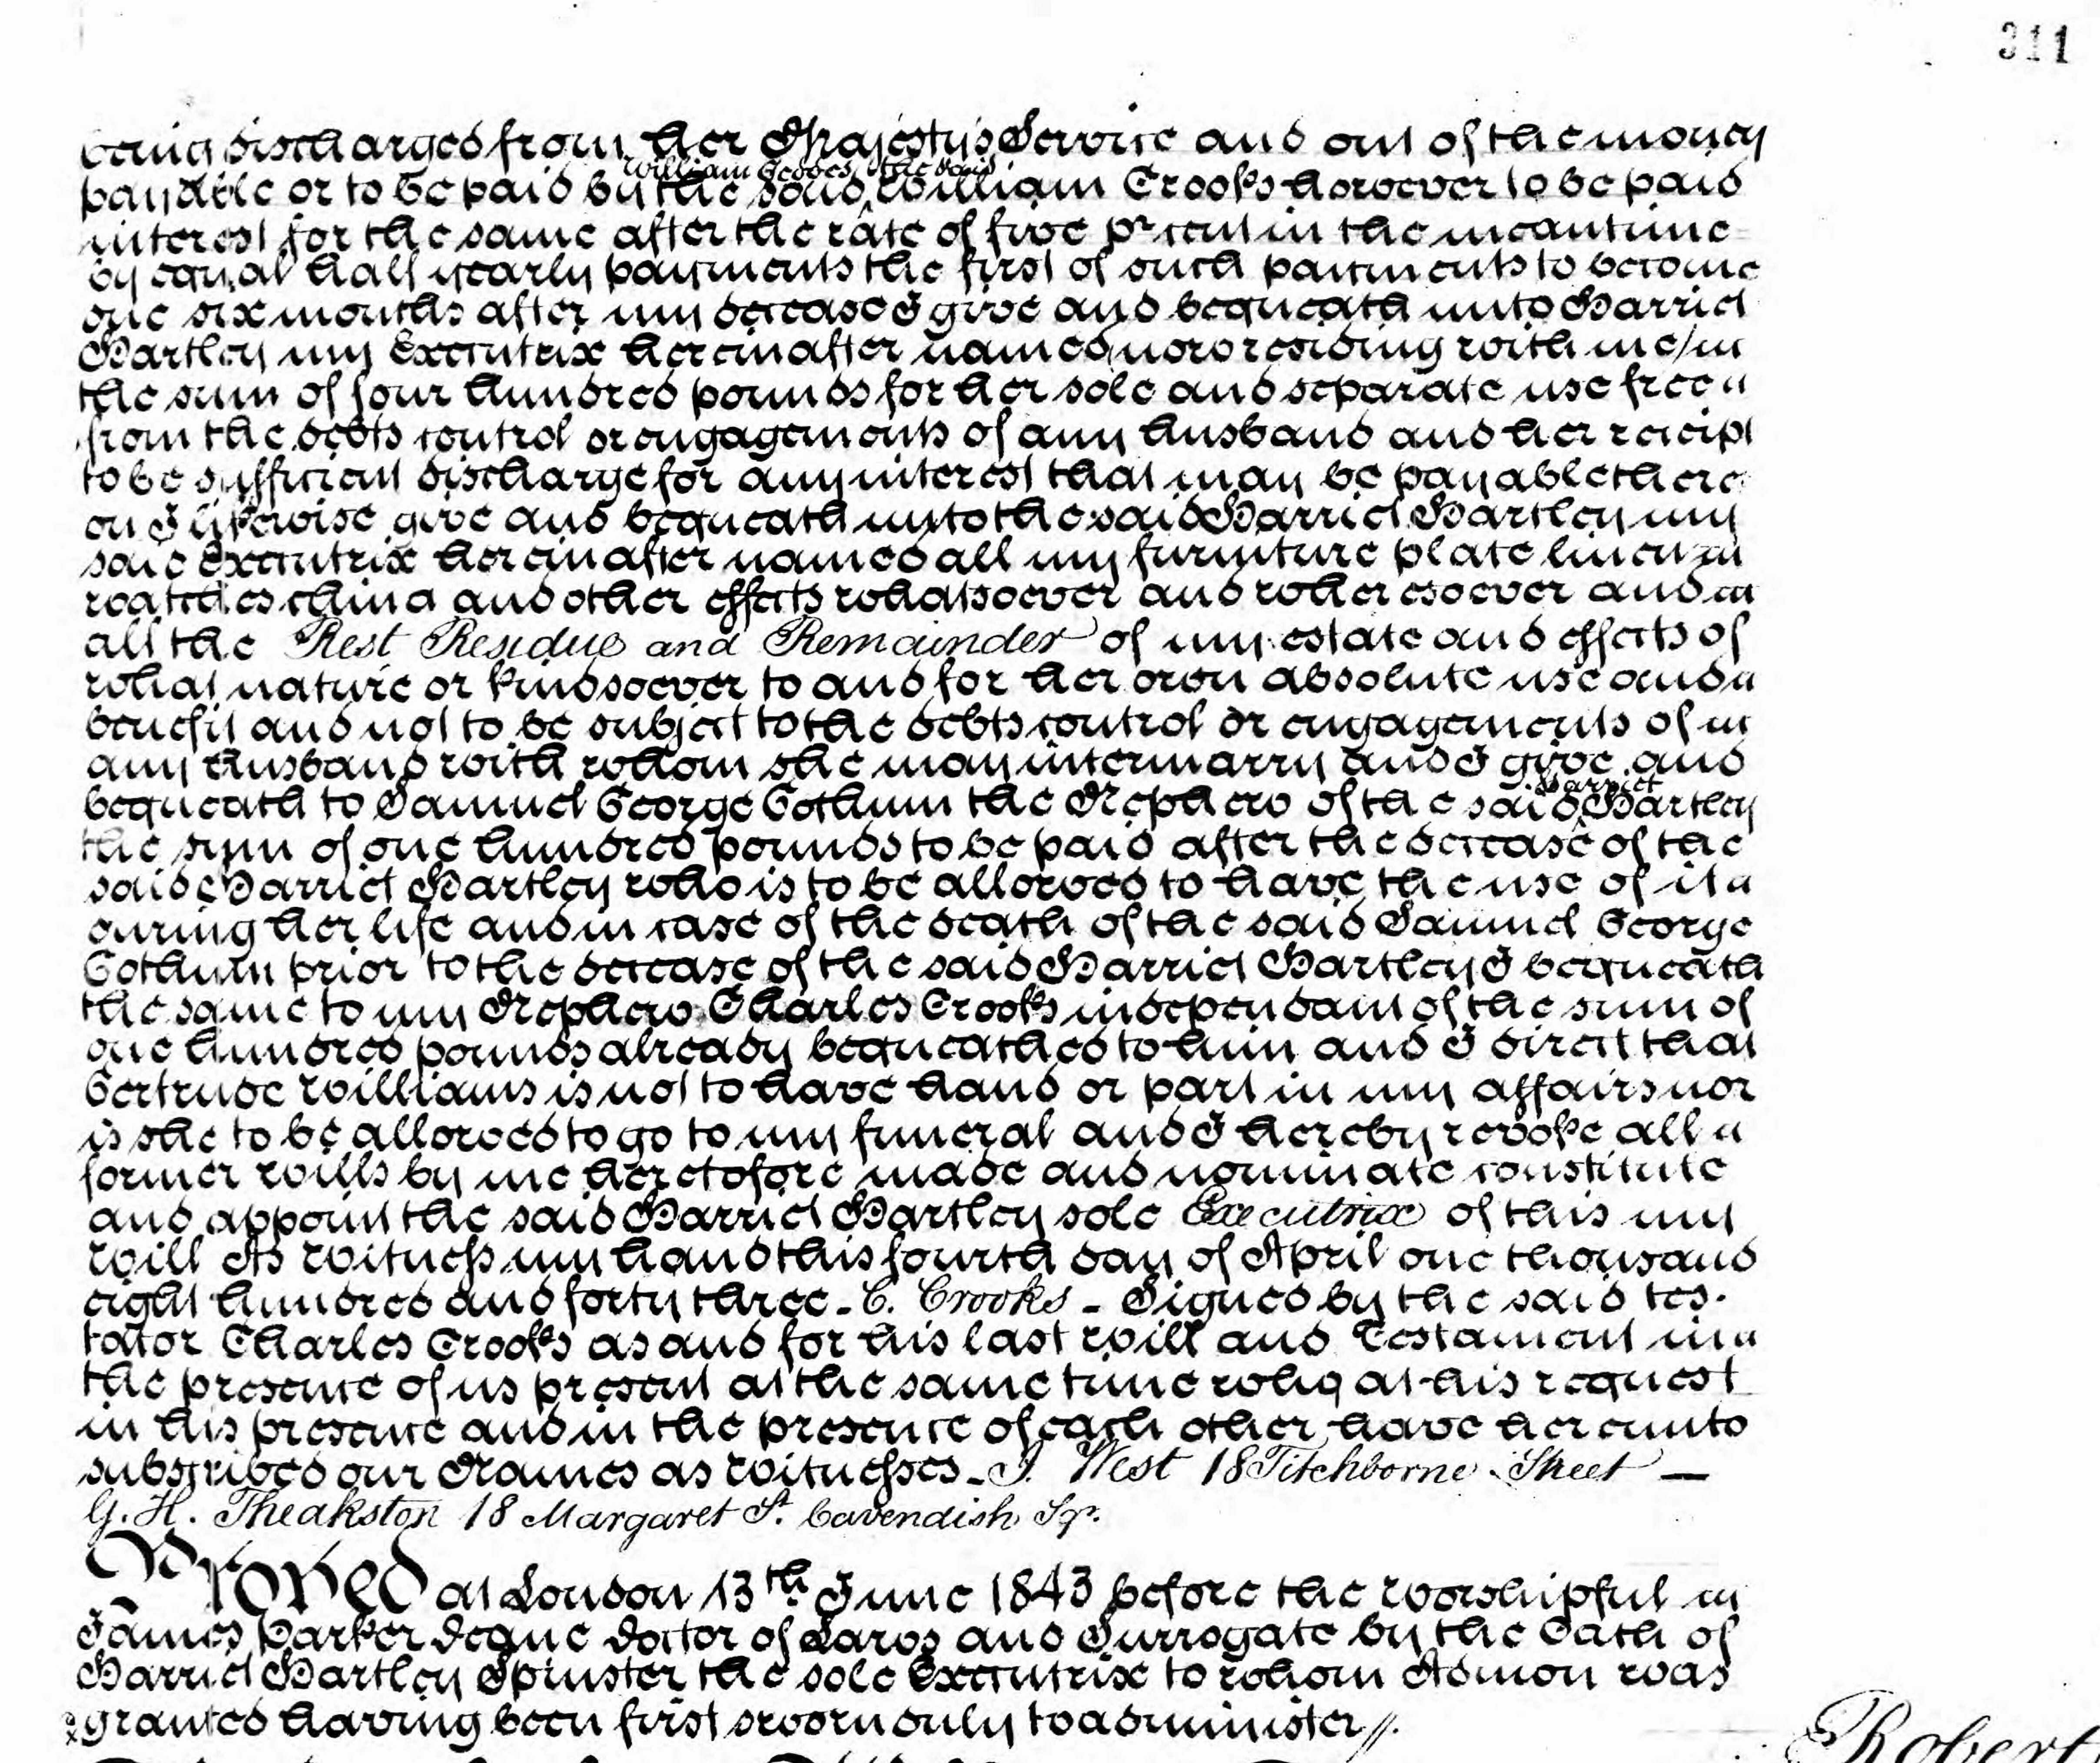 311
being discharged from Her Majesty's Service and out of the money
William Groves the said
payable or to be paid by the said William Crooks however to be paid
interest for the same after the rate of five pr cent in the meantime
by equal half yearly payments the first of such payments to become
due six months after my decease I give and bequeath unto Harriet
Hartley my Executrix hereinafter named now residing with me
the sum of four hundred pounds for her sole and separate use free
from the debts control or engagements of any husband and her receipt
to be sufficient discharge for any interest that may be payable there
on I likewise give and bequeath unto the said Harriet Hartley my
said Executrix hereinafter named all my furniture plate linen
watches china and other effects whatsoever and wheresoever and
all the Rest Residue and Remainder of my estate and effects of
what nature or kindsoever to and for her own absolute use and
benefit and not to be subject to the debts control or engagements of
any husband with whom she may intermarry and I give and
Harriet
bequeath to Samuel George Cothum the Nephew of the said Hartley
the sum of one hundred pounds to be paid after the decease of the
said Harriet Hartley who is to be allowed to have the use of it
during her life and in case of the death of the said Samuel George
Cothum prior to the decease of the said Harriet Hartley I bequeath
the same to my Nephew Charles Crooks independant of the sum of
one hundred pounds already bequeathed to him and I direct that
Gertrude Williams is not to have hand or part in my affairs nor
is she to be allowed to go to my funeral and I hereby revoke all
former wills by me heretofore made and nominate constitute
and appoint the said Harriet Hartley sole Executrix of this my
will As witness my hand this fourth day of April one thousand
eight hundred and forty three - C. Crooks - Signed by the said tes-
tator Charles Crooks as and for his last will and Testament in
the presence of us present at the same time who at his request
in his presence and in the presence of each other have hereunto
subscribed our Names as witnesses - J. West 18 Titchborne Street —
G. H. Theakston 18 Margaret St. Cavendish Sqr.
Proved at London 13th June 1843 before the Worshipful
James Parker Deane Doctor of Laws and Surrogate by the Oath of
Harriet Hartley Spinster the sole Executrix to whom Admon was
granted having been first sworn duly to administer //.
Robert